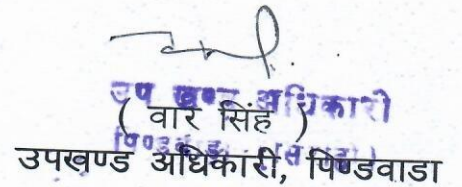 उप खण्ड अधिकारी
( वार सिंह )
उपखण्ड अधिकारी, पिण्डवाडा